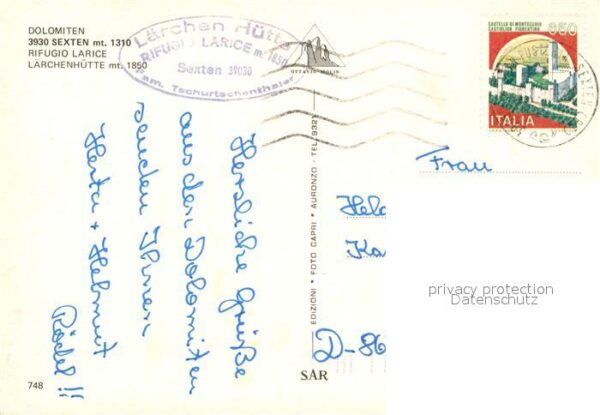 DOLOMITEN
3930 SEXTEN mt. 1310
RIFUGIO LARICE
LÄRCHENHÜTTE mt. 1850
Lärchen Hütte
RIFUGIO LARICE m. 1850
Sexten 39030
Fam. Tschurtschenthaler
OTTAVIO MOLIN
CASTELLO DI MONTECCHIO
CASTIGLION FIORENTINO
650
ITALIA
Herzliche Grüße
aus den Dolomiten
senden Ihnen
Herta + Helmut
Rödel !!
Frau
D-86
EDIZIONI * FOTO CAPRI * AURONZO - TEL. 9321
SAR
748
privacy protection
Datenschutz